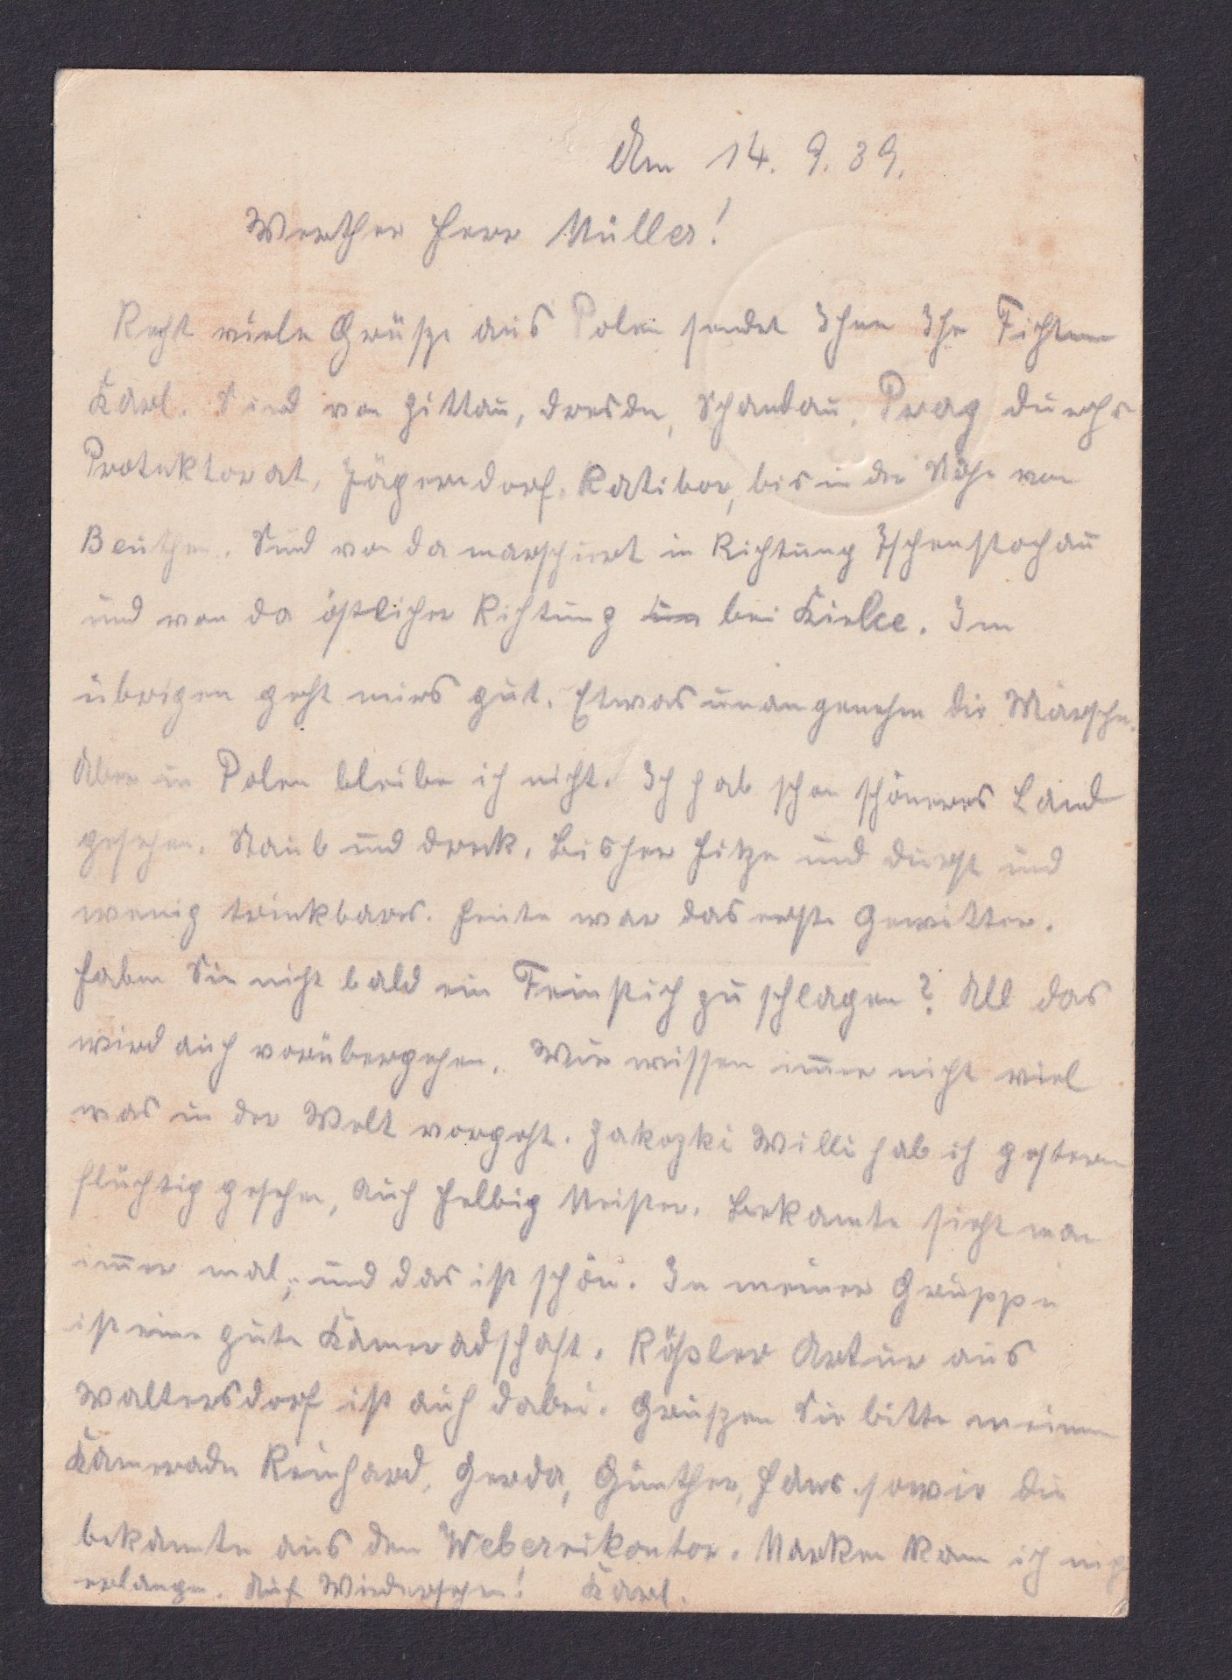 Am 14. 9. 39.
Werther Herr Müller!
Recht viele Grüße aus Polen sendet Ihnen Ihr Fichtner
Karl. Sind von Zittau, Dresden, Schandau, Prag durchs
Protektorat, Jägerndorf, Ratibor, bis in die Nähe von
Beuthen. Sind von da marschiert in Richtung Tschenstochau
und von da östlicher Richtung bei Kielce. Im
übrigen geht mirs gut. Etwas unangenehm die Märsche.
Aber in Polen bleibe ich nicht. Ich hab schon schöneres Land
gesehen. Staub und Dreck. Bisher Hitze und Durst und
wenig trinkbares. Heute war das erste Gewitter.
Haben Sie nicht bald ein zu schlagen? All das
wird auch vorübergehen. Wir wissen im̅er nicht viel
was in der Welt vorgeht. Willi hab ich gestern
flüchtig gesehen, auch Helbig Meister. Bekannte sieht man
im̅er mal, und das ist schön. In meiner Gruppe
ist eine gute Kameradschaft. Rößler Artur aus
Waltersdorf ist auch dabei. Grüßen Sie bitte meinen
Kameraden Reinhard, Gerda, Günther, Hans sowie die
bekannten aus dem Webereikontor. Marken kann ich nicht
erlangen. Auf Wiedersehen! Karl.